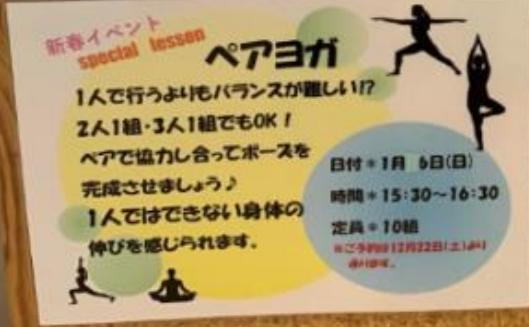 新春イベント
special lesson
ペアヨガ
1人で行うよりもバランスが難しい!?
2人1組・3人1組でもOK！
ペアで協力し合ってポーズを
完成させましょう♪
1人ではできない身体の
伸びを感じられます。
日付＊1月 6日(日)
時間＊15:30～16:30
定員＊10組
※ご予約は12月22日(土)より